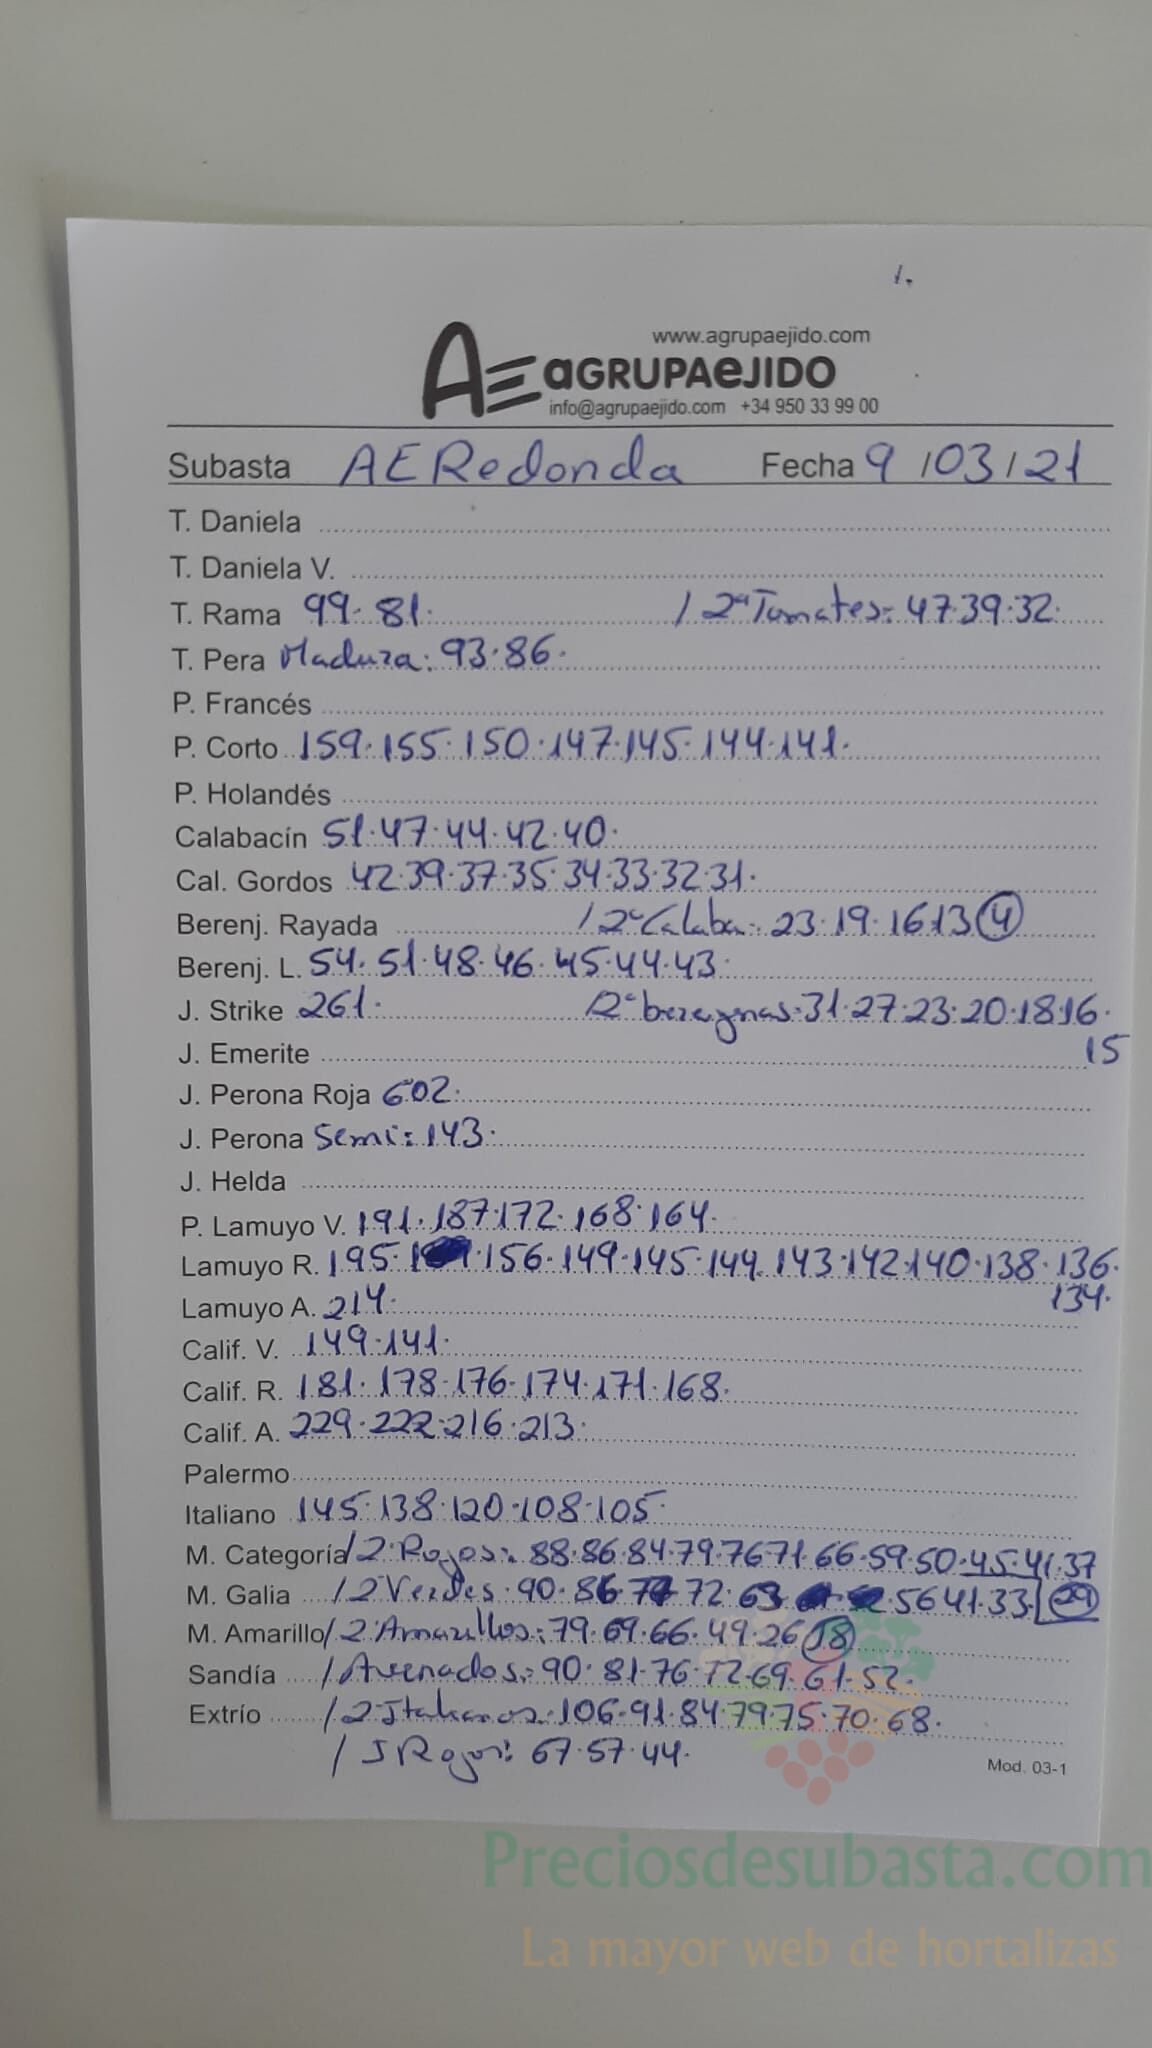 1.
www.agrupaejido.com
AE aGRUPAeJIDO
info@agrupaejido.com +34 950 33 99 00
Subasta AERedonda Fecha 9/03/21
T. Daniela
T. Daniela V.
T. Rama 99.81. / 2ªTomates: 47.39.32.
T. Pera Maduza: 93.86.
P. Francés
P. Corto 159.155.150.147.145.144.141.
P. Holandés
Calabacín 51.47.44.42.40.
Cal. Gordos 42.39.37.35.34.33.32.31.
Berenj. Rayada / 2ªCalaba: 23.19.16.13 4
Berenj. L. 54.51.48.46.45.44.43.
J. Strike 261. / 2ª berenjenas: 31.27.23.20.18.16.
J. Emerite 15
J. Perona Roja 602.
J. Perona Semi: 143.
J. Helda
P. Lamuyo V. 191.187.172.168.164.
Lamuyo R. 195. 156.149.145.144.143.142.140.138.136.
Lamuyo A. 214. 134.
Calif. V. 149.141.
Calif. R. 181.178.176.174.171.168.
Calif. A. 229.222.216.213.
Palermo
Italiano 145.138.120.108.105.
M. Categoría / 2ªRojos: 88.86.84.79.76.71.66.59.50.45.41.37
M. Galia / 2ªVerdes. 90.86.77.72.63. 56.41.33. 29
M. Amarillo / 2ªAmarillos: 79.69.66.49.26 18
Sandía / Asurcados: 90.81.76.72.69.61.52.
Extrío / 2ªItalianos: 106.91.84.79.75.70.68.
/ J Rojos: 67.57.44.
Mod. 03-1
Preciosdesubasta.com
La mayor web de hortalizas